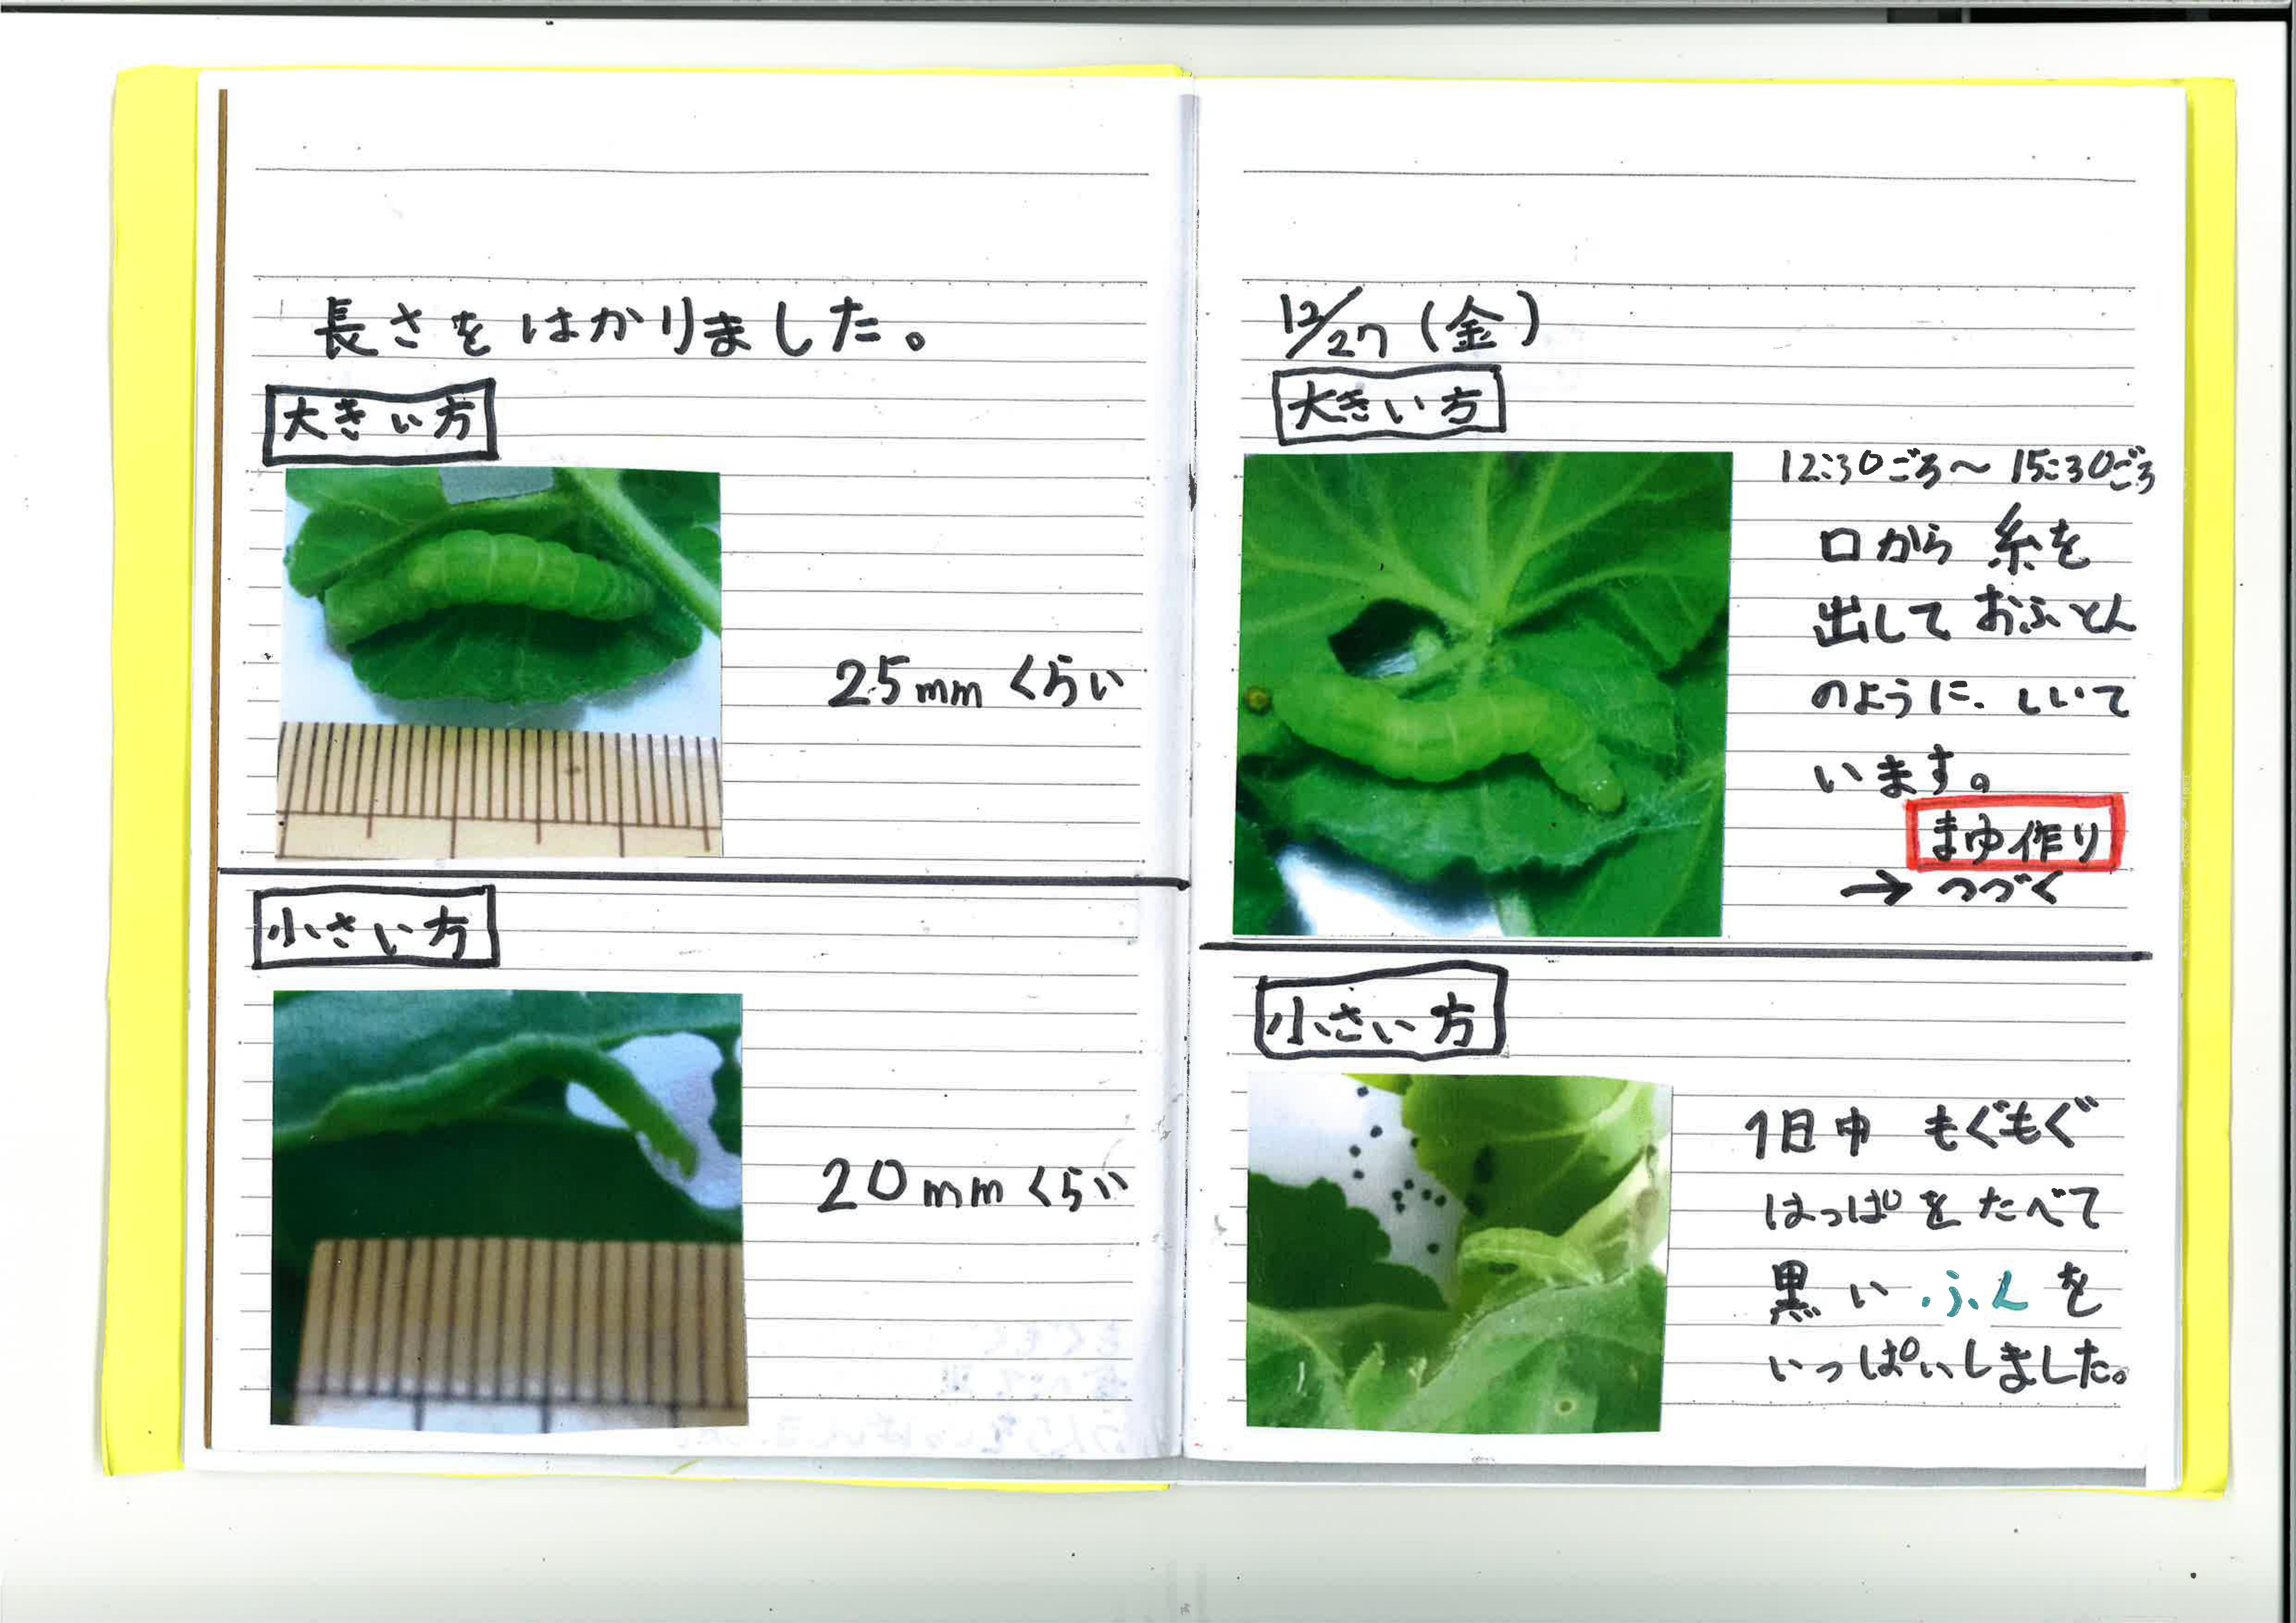 長さをはかりました。
大きい方
25mmくらい
小さい方
20mmくらい
12/27(金)
大きい方
12:30ごろ〜15:30ごろ
口から糸を
出しておふとん
のように、しいて
います。
まゆ作り
→つづく
小さい方
1日中 もぐもぐ
はっぱをたべて
黒いふんを
いっぱいしました。